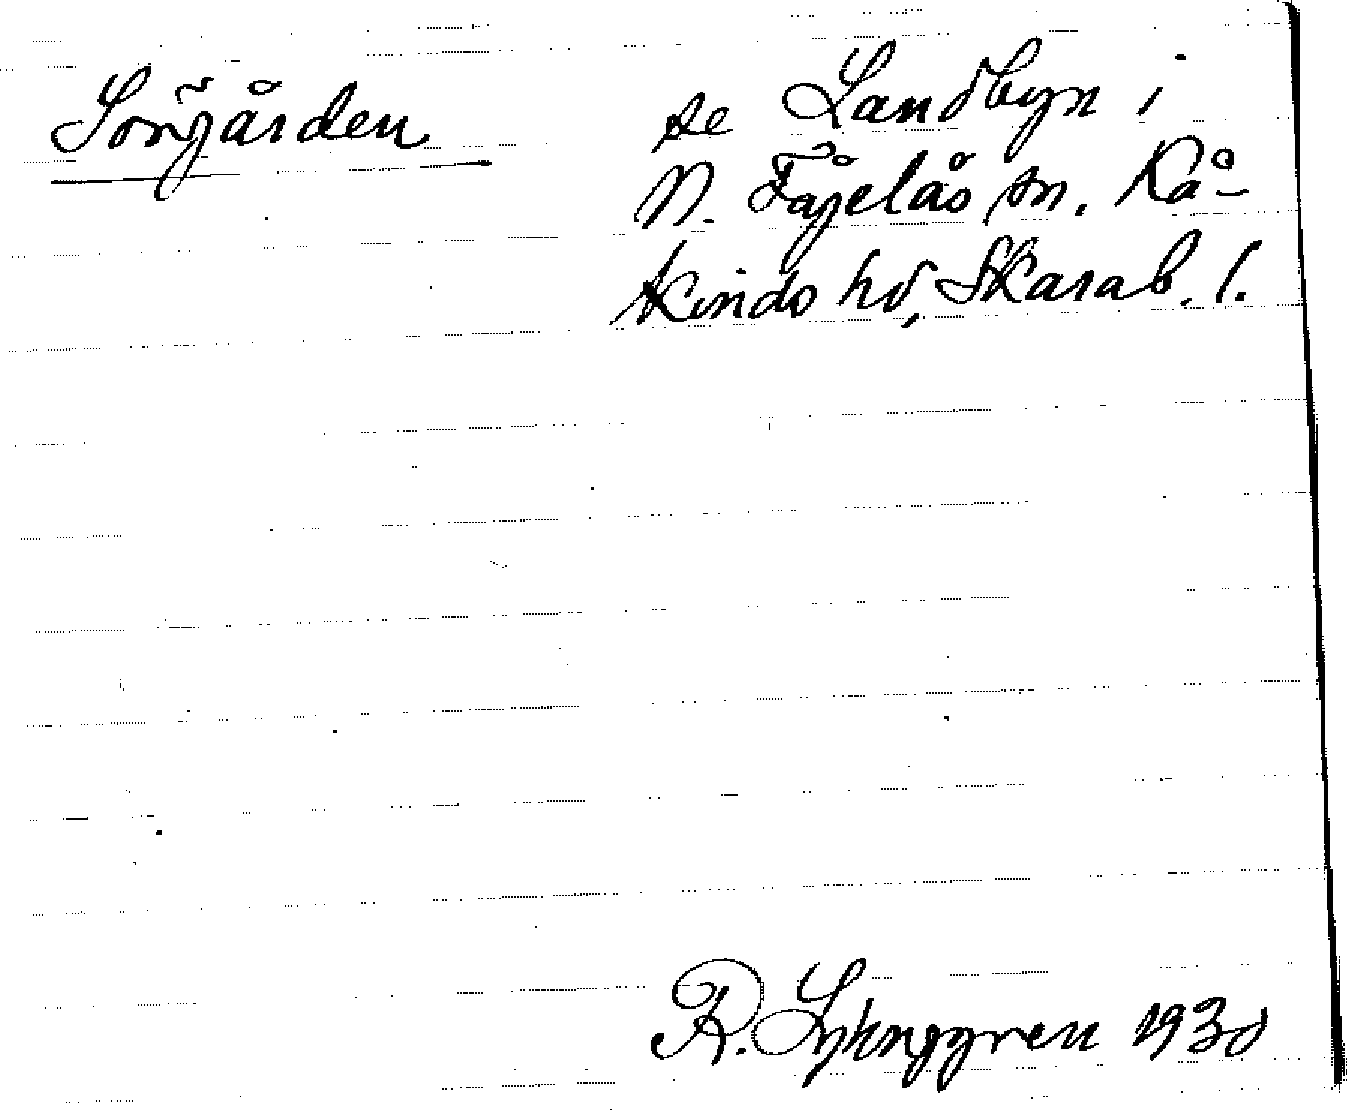 Sörgården se Landbyn i
N. Fågelås sn. Kå-
kinds hd, Skarab. l.
R. Ljunggren 1930